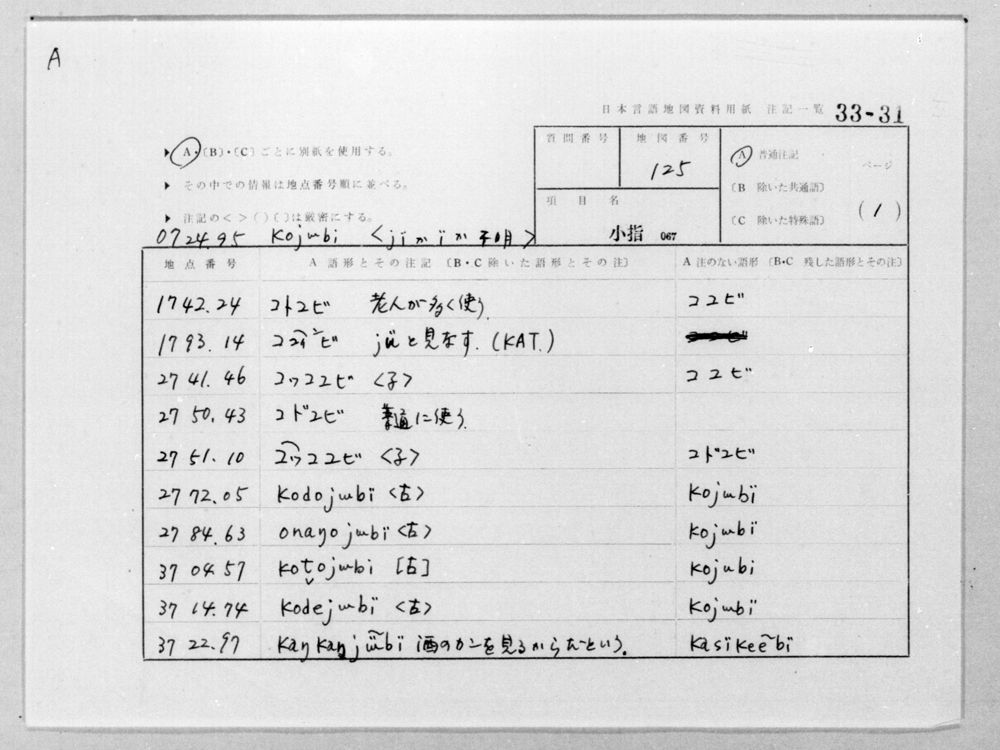 A
日本言語地図資料用紙 注記一覧 33-31
▶ A・〔B〕・〔C〕ごとに別紙を使用する。
▶ その中での情報は地点番号順に並べる。
▶ 注記の< >( )〔 〕は厳密にする。
質問番号 地図番号 125
項目名 小指 067
A 普通注記
〔B 除いた共通語〕
〔C 除いた特殊語〕
ページ
(1)
0724.95 Kojɯbi
地点番号 A 語形とその注記〔B・C除いた語形とその注〕 A 注のない語形〔B・C 残した語形とその注〕
1742.24 コトユビ 老人が多く使う. ココビ
1793.14 jïïと見なす.(KAT.)
2741.46 コッコユビ <子> コユビ
2750.43 コドユビ 普通に使う.
2751.10 コッコユビ <子> コドユビ
2772.05 Kodojɯbï <古> Kojɯbï
2784.63 onaŋojɯbï <古> Kojɯbï
3704.57 Kot̬ojɯbi [古] Kojɯbi
3714.74 Kodejɯbï <古> Kojɯbï
3722.97 KaŋKaŋjɯ̈̃bï 酒のカンを見るからだという。 Kasïkeẽbï